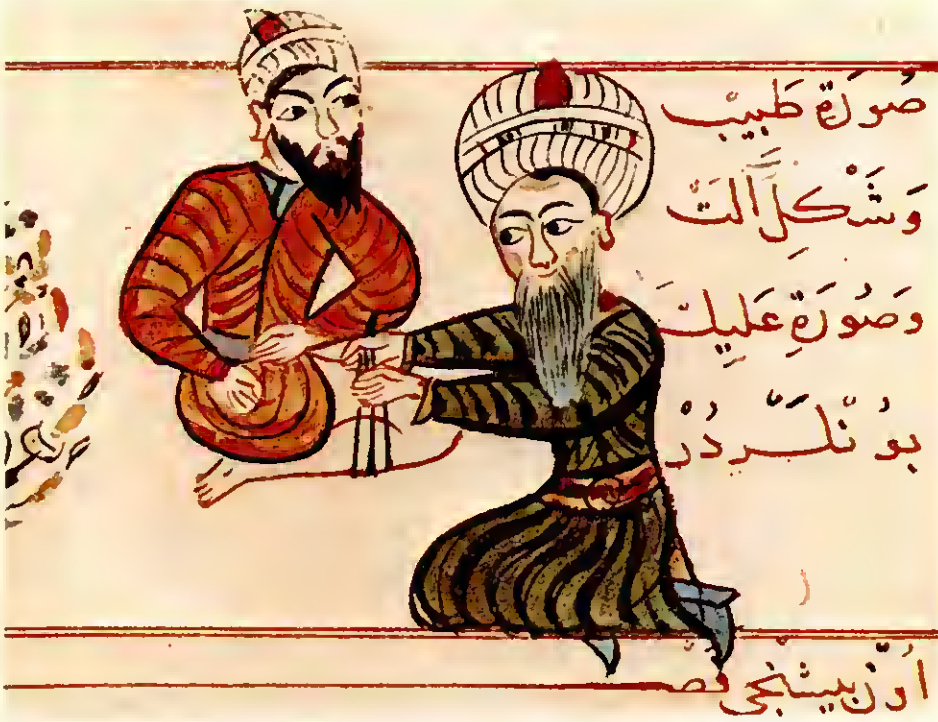 صُورَةِ طَبِيبْ
وَشَكْلِ آلَتْ
وَصُورَةِ عَلِيلْ
بُو نْلَرْدُرْ
اُونْ بِيشِنْجِى فصل